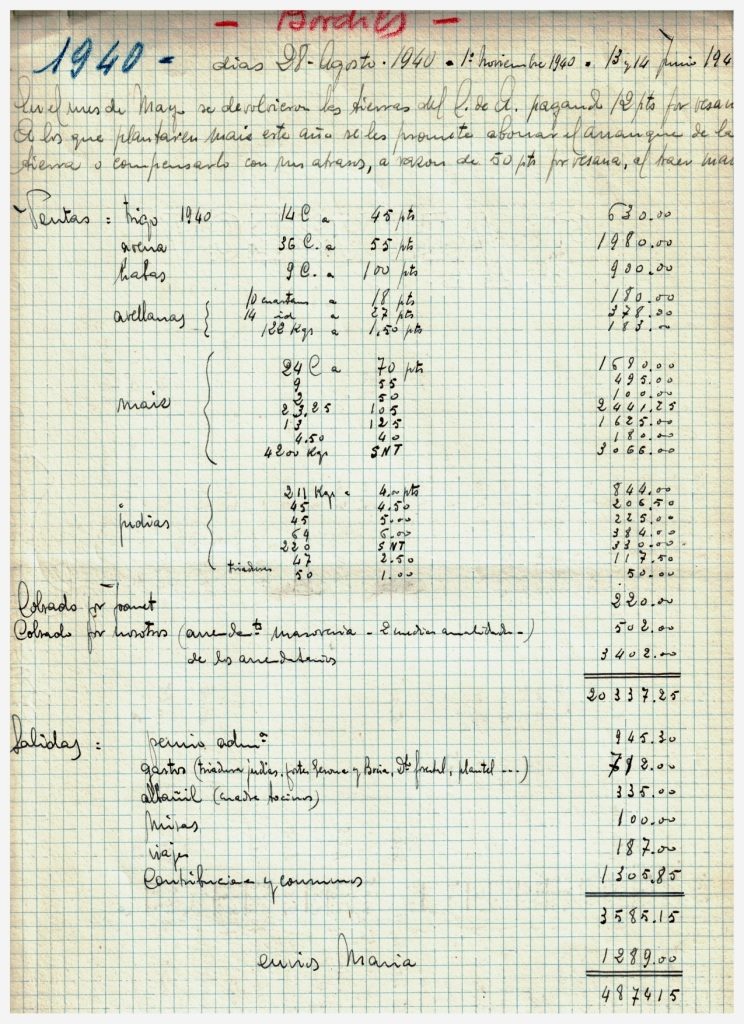 - Bordils -
1940 - dias 28 - Agosto - 1940 - 1º Noviembre 1940 - 13 y 14 Junio 194
En el mes de May se devolvieron las tierras del C. de A. pagando 12 pts por vesan
A los que plantaren mais este año se les promete abonar el arranque de la
tierra o compensarlo con sus atrasos, a razon de 50 pts por vesana, al haer mai
Ventas : trigo 1940 14 C a 45 pts 630.00
avena 36 C. a 55 pts 1980.00
habas 9 C. a 100 pts 900.00
10 cuartans a 18 pts 180.00
avellanas { 14 id a 27 pts 378.00
122 Kgs a 1,50 pts 183.00
24 C a 70 pts 1680.00
9 55 495.00
2 50 100.00
mais { 23,25 105 2441,25
13 125 1625.00
4.50 40 180.00
4200 Kgs SNT 3066.00
211 Kgs a 4.00 pts 844.00
45 4.50 206.50
45 5.00 225.00
judias { 64 6.00 384.00
220 SNT 330.00
47 2.50 117.50
triadures 50 1.00 50.00
Cobrado por Joanet 220.00
Cobrado por nosotros (arrendatº masoveria - 2 medias anualidades -) 502.00
de los arrendatarios 3402.00
20337.25
Salidas : premio admº 945.30
gastos (triadura judias, portes Gerona y Boria, Dto frestel, plantel ...) 712.00
albañil (cuadra tocinos) 335.00
Misas 100.00
viajes 187.00
Contribucion y consumos 1305,85
3585.15
envios Maria 1289.00
487415